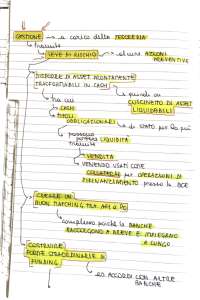 GESTIONE → a carico della TESORERIA
tramite
LEVE DI RISCHIO → alcune AZIONI
PREVENTIVE
DISPORRE DI ASSET PRONTAMENTE
TRASFORMABILI IN CASH → quindi di
CUSCINETTO DI ASSET
LIQUIDABILI
tra cui
→ CASH
→ TITOLI
OBBLIGAZIONARI → di stato per lo più
possono
LIQUIDITÀ
tramite
→ VENDITA
→ VENENDO USATI COME
COLLATERALE per OPERAZIONI DI
RIFINANZIAMENTO presso la BCE
CREARE UN
BUON MATCHING TRA ATT. E PASS.
→ complesso perché la BANCHE
RACCOLGONO A BREVE E IMPIEGANO
A LUNGO
COSTRUIRE
FORME STRAORDINARIE DI
FUNDING
→ ACCORDI CON ALTRE
BANCHE